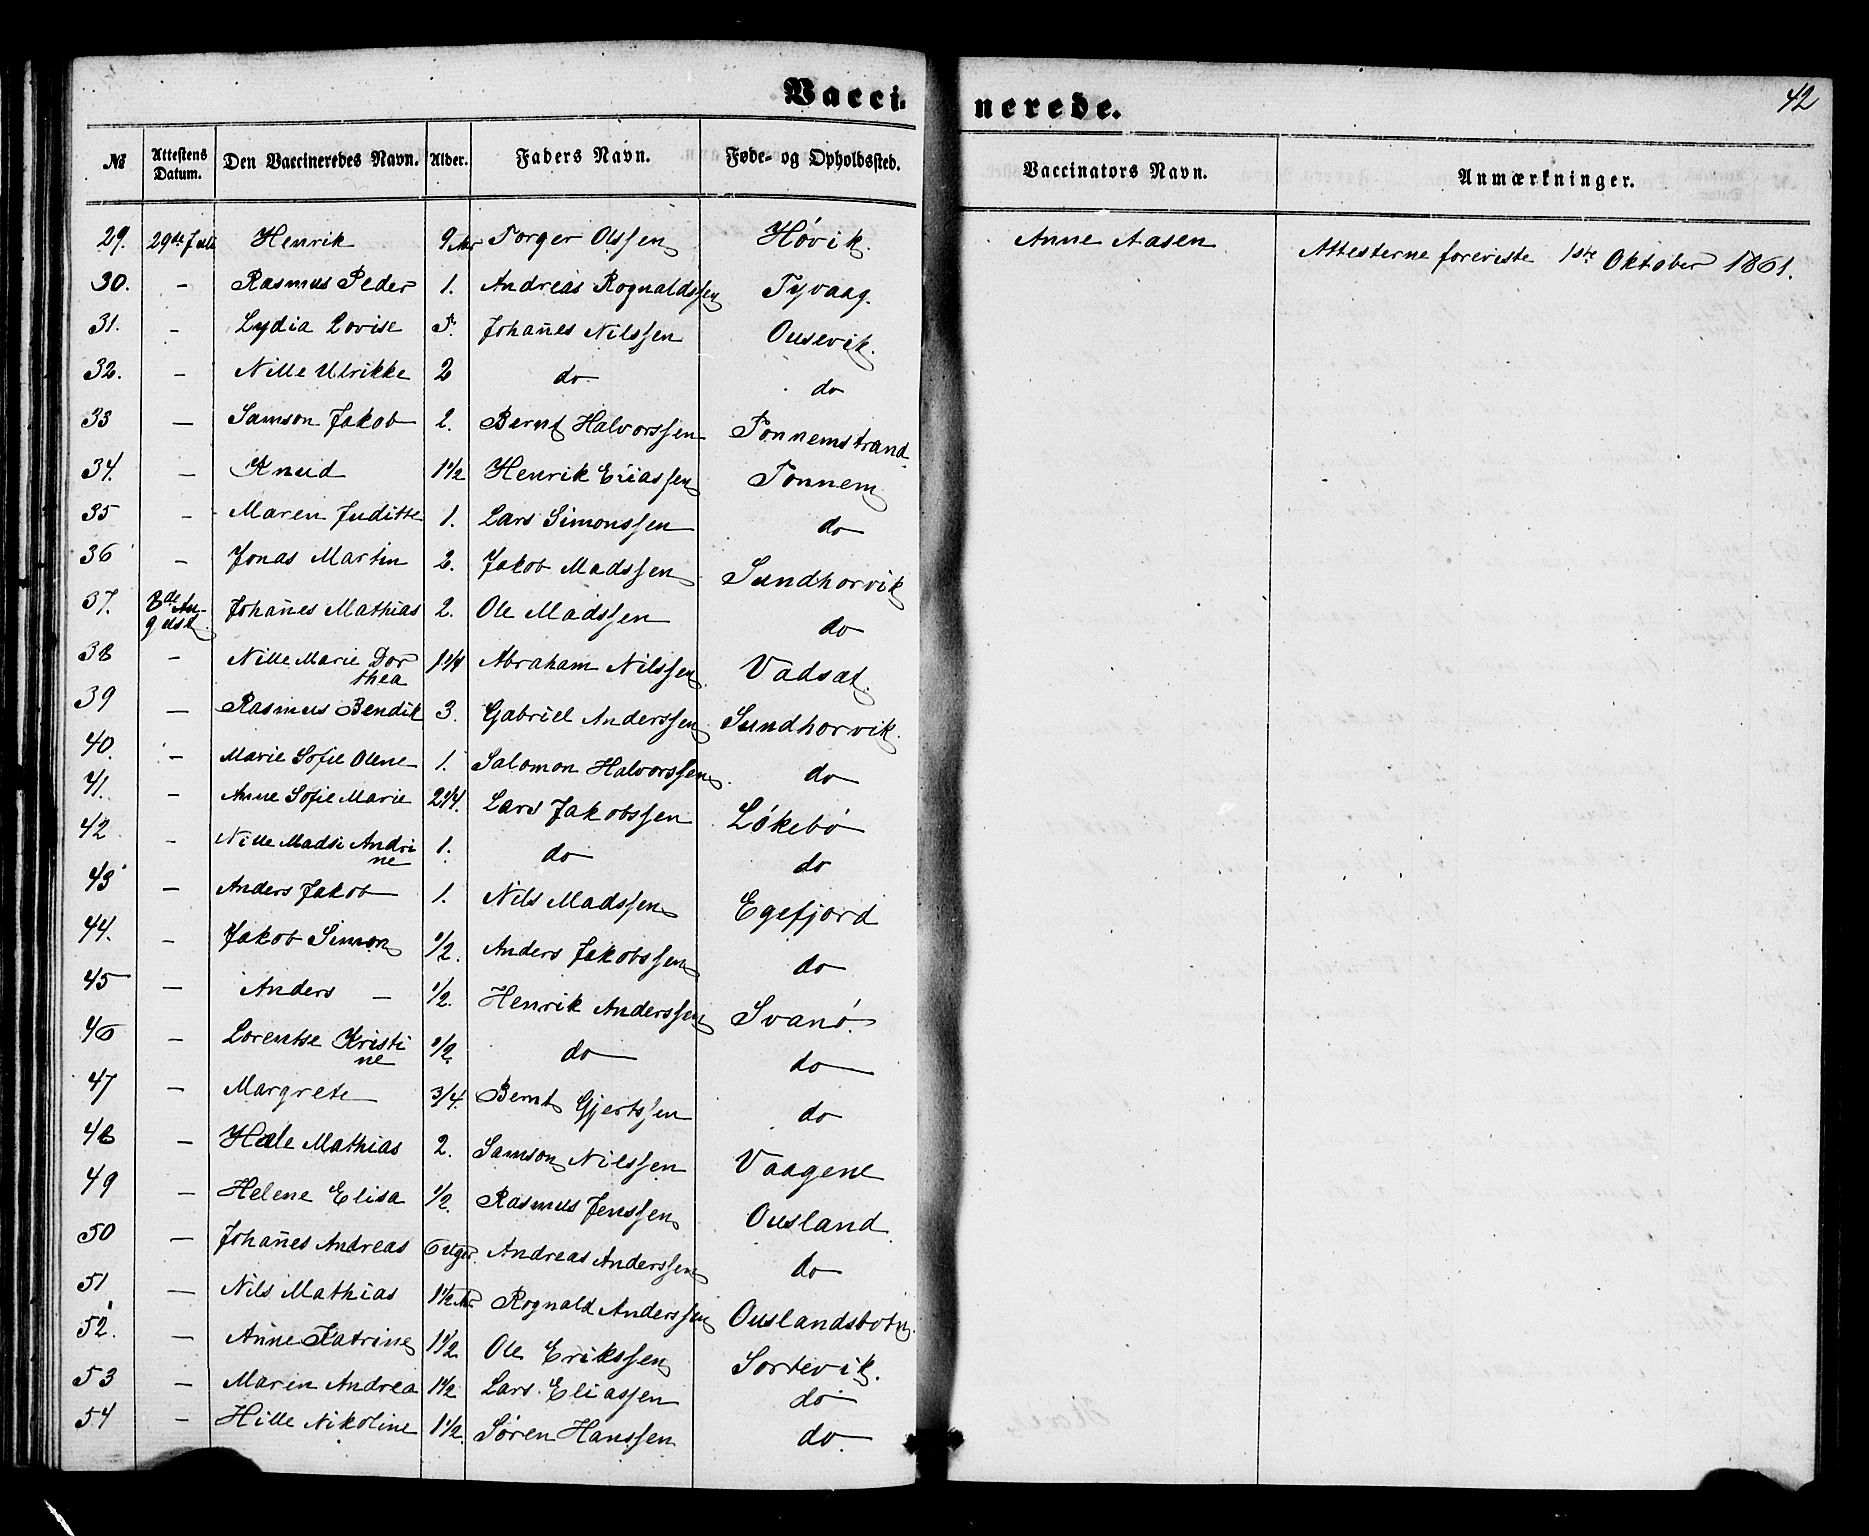 Vaccinerede.
42
№ Attestens Datum. Den Vaccineredes Navn. Alder. Faders Navn. Føde- og Opholdssted. Vaccinators Navn. Anmærkninger.
29. 29de Juli Henrik 9 Mr Torger Olssen Høvik. Anne Aasen Attesterne foreviste 1ste Oktober 1861.
30. – Rasmus Peder 1. Andreas Rognaldssen Tyvaag.
31. – Lydia Lovise 5. Johan̄es Nilssen Ousevik.
32. – Nille Ulrikke 2 do do
33 – Samson Jakob 2. Bernt Halvorssen Tonnemstrand.
34. – Knud 1 1/2 Henrik Eliassen Tonnem
35 – Maren Juditte 1. Lars Simonssen do
36 – Jonas Martin 2. Jakob Madssen Sundhorvik
37. 8de Au-gust. Johan̄es Mathias 2. Ole Madssen do
38 – Nille Marie Dorthea 1 1/4 Abraham Nilssen Vadsæt.
39 – Rasmus Bendik 3. Gabriel Anderssen Sundhorvik.
40. – Marie Sofie Olene 1. Salomon Halvorssen do
41. – Anne Sofie Marie 2 1/4. Lars Jakobssen Løkebø
42 – Nille Madsi Andrine 1. do do
43 – Anders Jakob 1. Nils Madssen Egefjord
44. – Jakob Simon 1/2. Anders Jakobssen do
45 – Anders – 1/2. Henrik Anderssen Svanø.
46 – Lorentse Kristine 1/2. do do
47 – Margrete 3/4. Bernt Gjertssen do
48 – Hæle Mathias 2. Samson Nilssen Vaagene
49 – Helene Elisa 1/2. Rasmus Jenssen Ousland
50 – Johan̄es Andreas 6 Uger. Andreas Anderssen do
51 – Nils Mathias 1 1/2 Ar. Rognald Anderssen Ouslandsbotn.
52. – An̄ne Katrine 1 1/2 Ole Erikssen Sortevik.
53 – Maren Andrea 1 1/2 Lars Eliassen do
54 – Hille Nikoline 1 1/2. Søren Hanssen do.